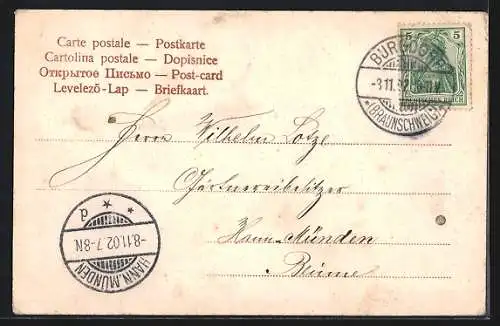 Carte postale — Postkarte
Cartolina postale — Dopisnice
Открытое Письмо — Post-card
Levelező-Lap — Briefkaart.
5 5
BURGDORF
-3.11.02
* (BRAUNSCHWEIG) *
Herrn Wilhelm Lotze
Gärtnereibesitzer
Hann. Münden
Blume
* * d
-8.11.02.7-8N
HANN. MÜNDEN